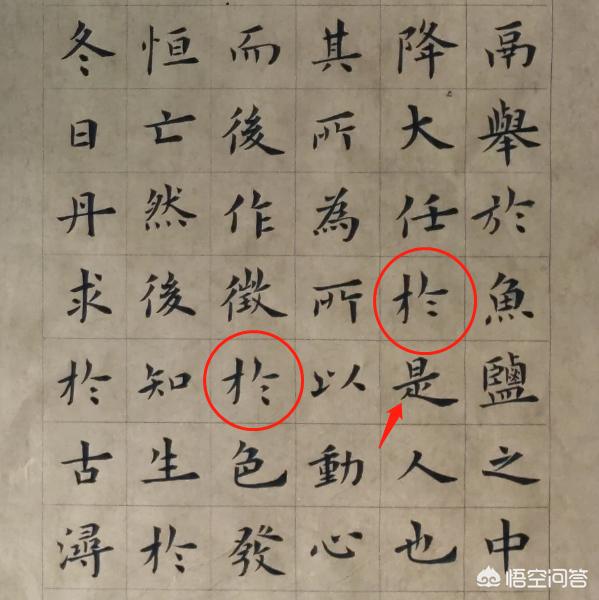 鬲舉於魚鹽之中
降大任於是人也
其所為所以動心
而後作徵於色發
恒亡然後知生於
冬日丹求於古潯
悟空问答